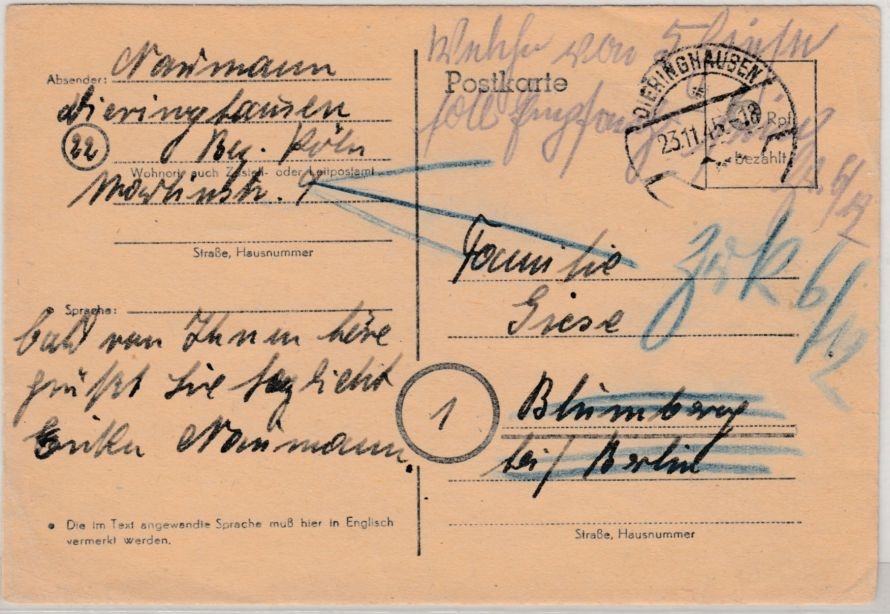 Absender: Naumann
Dieringhausen
22 Bez. Köln
Wohnort, auch Zustell- oder Leitpostamt
9
Straße, Hausnummer
Sprache:
bald von Ihnen höre
grüßt Sie
Naumann.
• Die im Text angewandte Sprache muß hier in Englisch
vermerkt werden.
Welche von 5
Postkarte
soll
DIERINGHAUSEN
23.11.45-18
Rpf
bezahlt
6/12
Familie
Giese
zrk 6/12
1
Blumberg
bei/ Berlin
Straße, Hausnummer